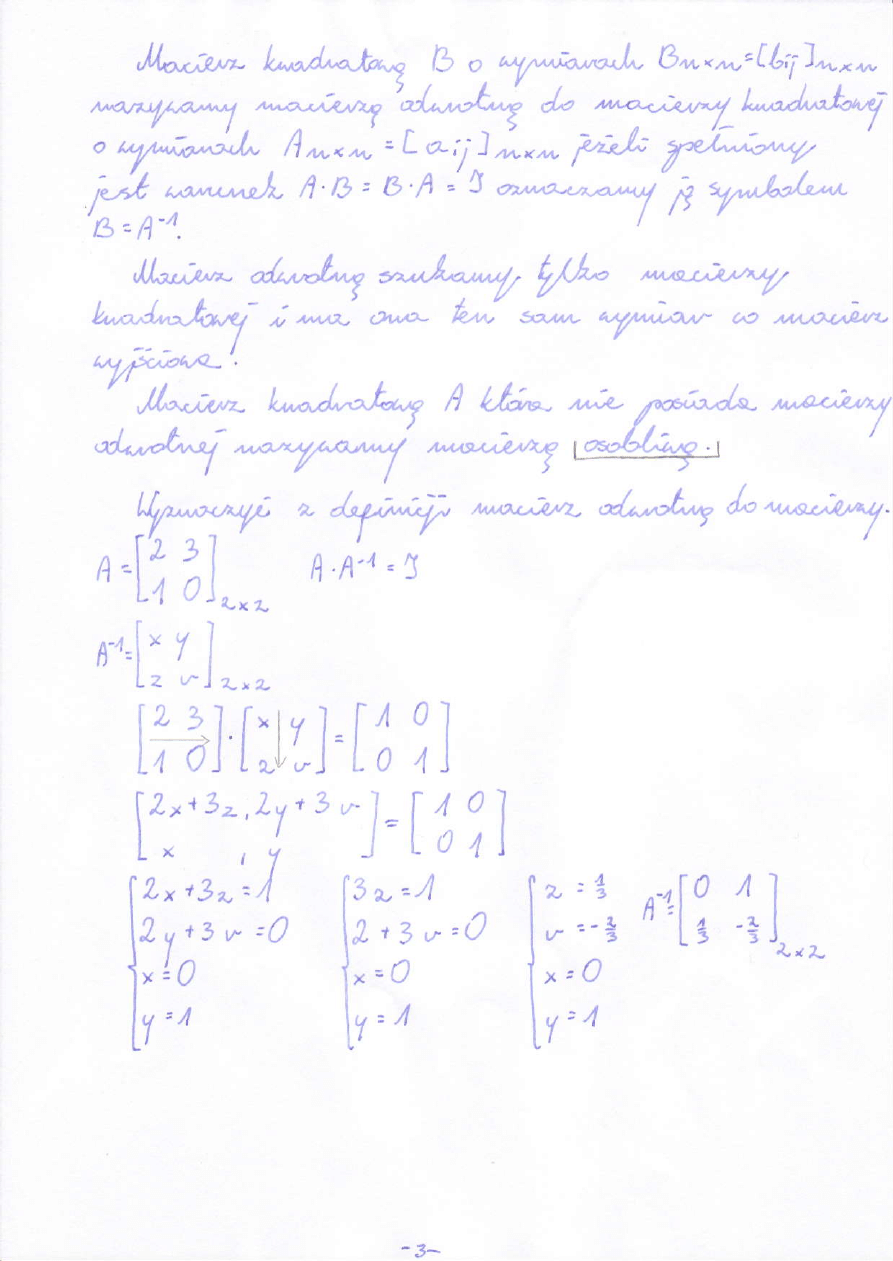 Macierz kwadratową B o wymiarach Bn×n=[bij]n×n
nazywamy macierzą odwrotną do macierzy kwadratowej
o wymiarach An×n=[aij]n×n jeżeli spełniony
jest warunek A·B=B·A=I oznaczamy ją symbolem
B=A⁻¹.
Macierz odwrotną szukamy tylko macierzy
kwadratowej i ma ona ten sam wymiar co macierz
wyjściowa.
Macierz kwadratową A która nie posiada macierzy
odwrotnej nazywamy macierzą osobliwą.
Wyznaczyć z definicji macierz odwrotną do macierzy.
A=[2 3; 1 0]2×2 A·A⁻¹=I
A⁻¹=[x y; z v]2×2
[2 3; 1 0]·[x y; z v]=[1 0; 0 1]
[2x+3z, 2y+3v; x, y]=[1 0; 0 1]
2x+3z=1 3z=1 z=1/3 A⁻¹=[0 1; 1/3 -2/3]2×2
2y+3v=0 2+3v=0 v=-2/3
x=0 x=0 x=0
y=1 y=1 y=1
-3-